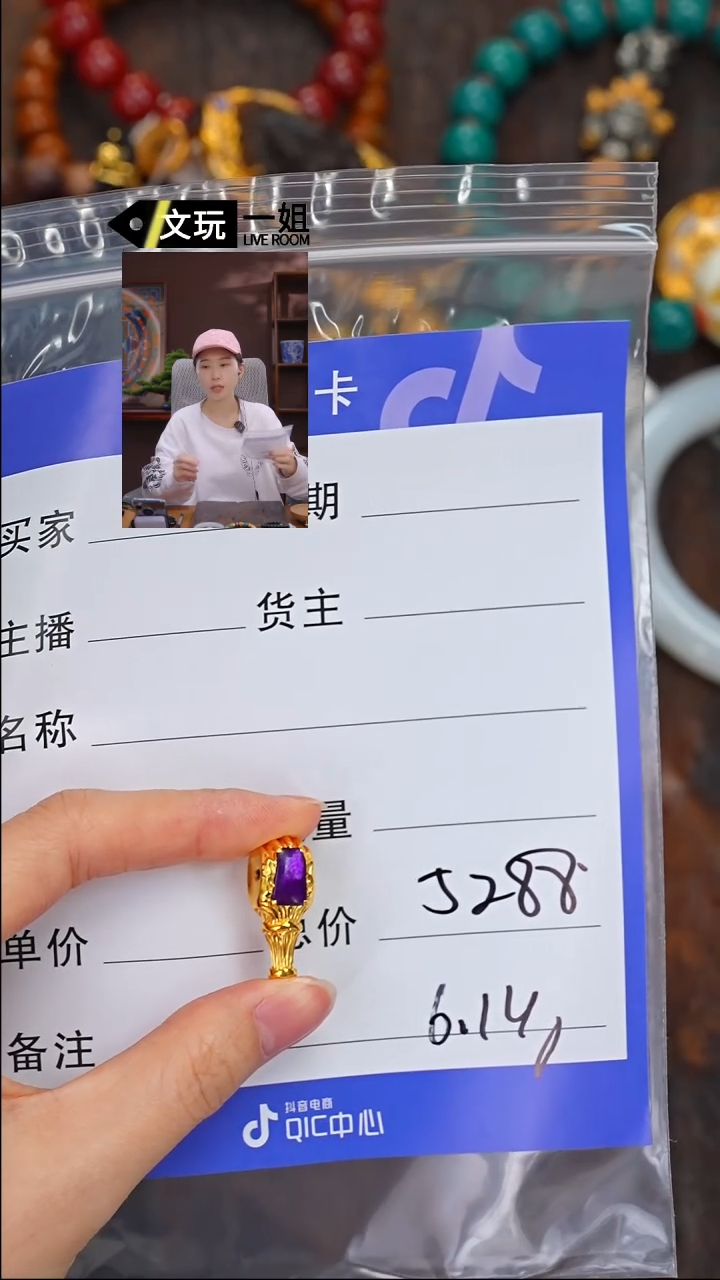 文玩一姐
LIVE ROOM
卡
买家
期
主播
货主
名称
量
5288
单价
总价
6.14g
备注
抖音电商
QIC中心